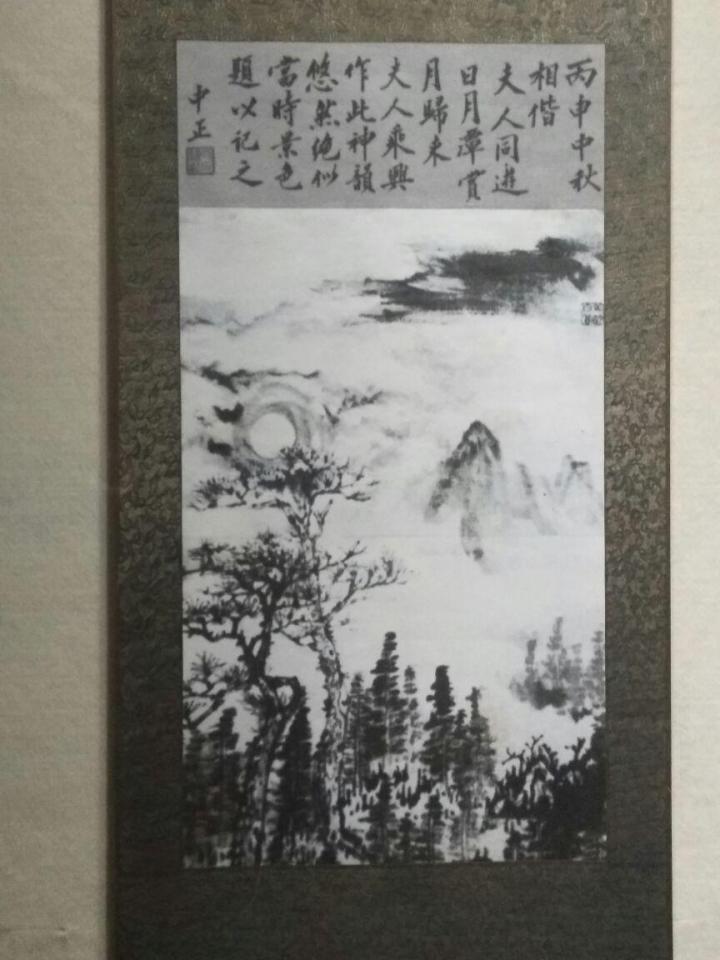 丙申中秋
相偕
夫人同遊
日月潭賞
月歸来
夫人乘興
作此神韻
悠然绝似
當時景色
題以記之
中正